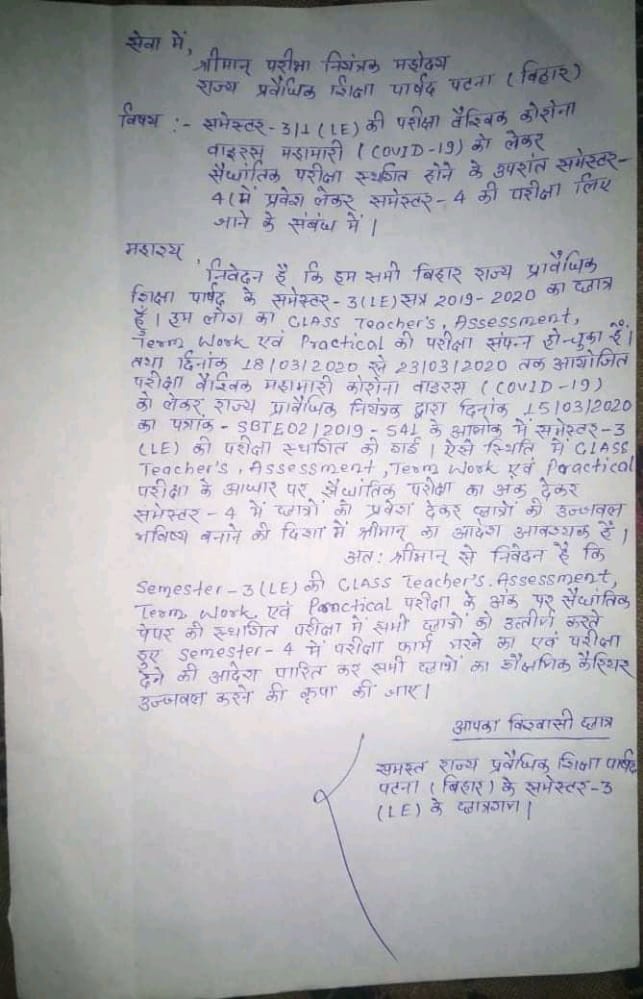 सेवा में,
श्रीमान् परीक्षा नियंत्रक महोदय
राज्य प्रवैधिक शिक्षा पार्षद पटना (बिहार)
विषय :- समेस्टर-3/1 (LE) की परीक्षा वैश्विक कोरोना
वाइरस महामारी (COVID-19) को लेकर
सैधांतिक परीक्षा स्थगित होने के उपरांत समेस्टर-
4 में प्रवेश लेकर समेस्टर-4 की परीक्षा लिए
जाने के संबंध में।
महाशय,
निवेदन है कि हम सभी बिहार राज्य प्रावैधिक
शिक्षा पार्षद के समेस्टर-3(LE) सत्र 2019-2020 का छात्र
हूँ। हम लोग का CLASS Teacher's, Assessment,
Term Work एवं Practical की परीक्षा संपन्न हो चुका है।
तथा दिनांक 18/03/2020 से 23/03/2020 तक आयोजित
परीक्षा वैश्विक महामारी कोरोना वाइरस (COVID-19)
को लेकर राज्य प्रावैधिक नियंत्रक द्वारा दिनांक 15/03/2020
का पत्रांक - SBTE02/2019-541 के आलोक में समेस्टर-3
(LE) की परीक्षा स्थगित की गई। ऐसे स्थिति में CLASS
Teacher's, Assessment, Term Work एवं Practical
परीक्षा के आधार पर सैधांतिक परीक्षा का अंक देकर
समेस्टर-4 में छात्रों को प्रवेश देकर छात्रों की उज्जवल
भविष्य बनाने की दिशा में श्रीमान् का आदेश आवश्यक है।
अत: श्रीमान् से निवेदन है कि
Semester-3(LE) की CLASS Teacher's. Assessment,
Term Work एवं Practical परीक्षा के अंक पर सैधांतिक
पेपर की स्थगित परीक्षा में सभी छात्रों को उत्तीर्ण करते
हुए Semester-4 में परीक्षा फार्म भरने का एवं परीक्षा
देने की आदेश पारित कर सभी छात्रों का शैक्षणिक कैरियर
उज्जवल करने की कृपा की जाए।
आपका विश्वासी छात्र
समस्त राज्य प्रवैधिक शिक्षा पार्षद
पटना (बिहार) के समेस्टर-3
(LE) के छात्रगण।